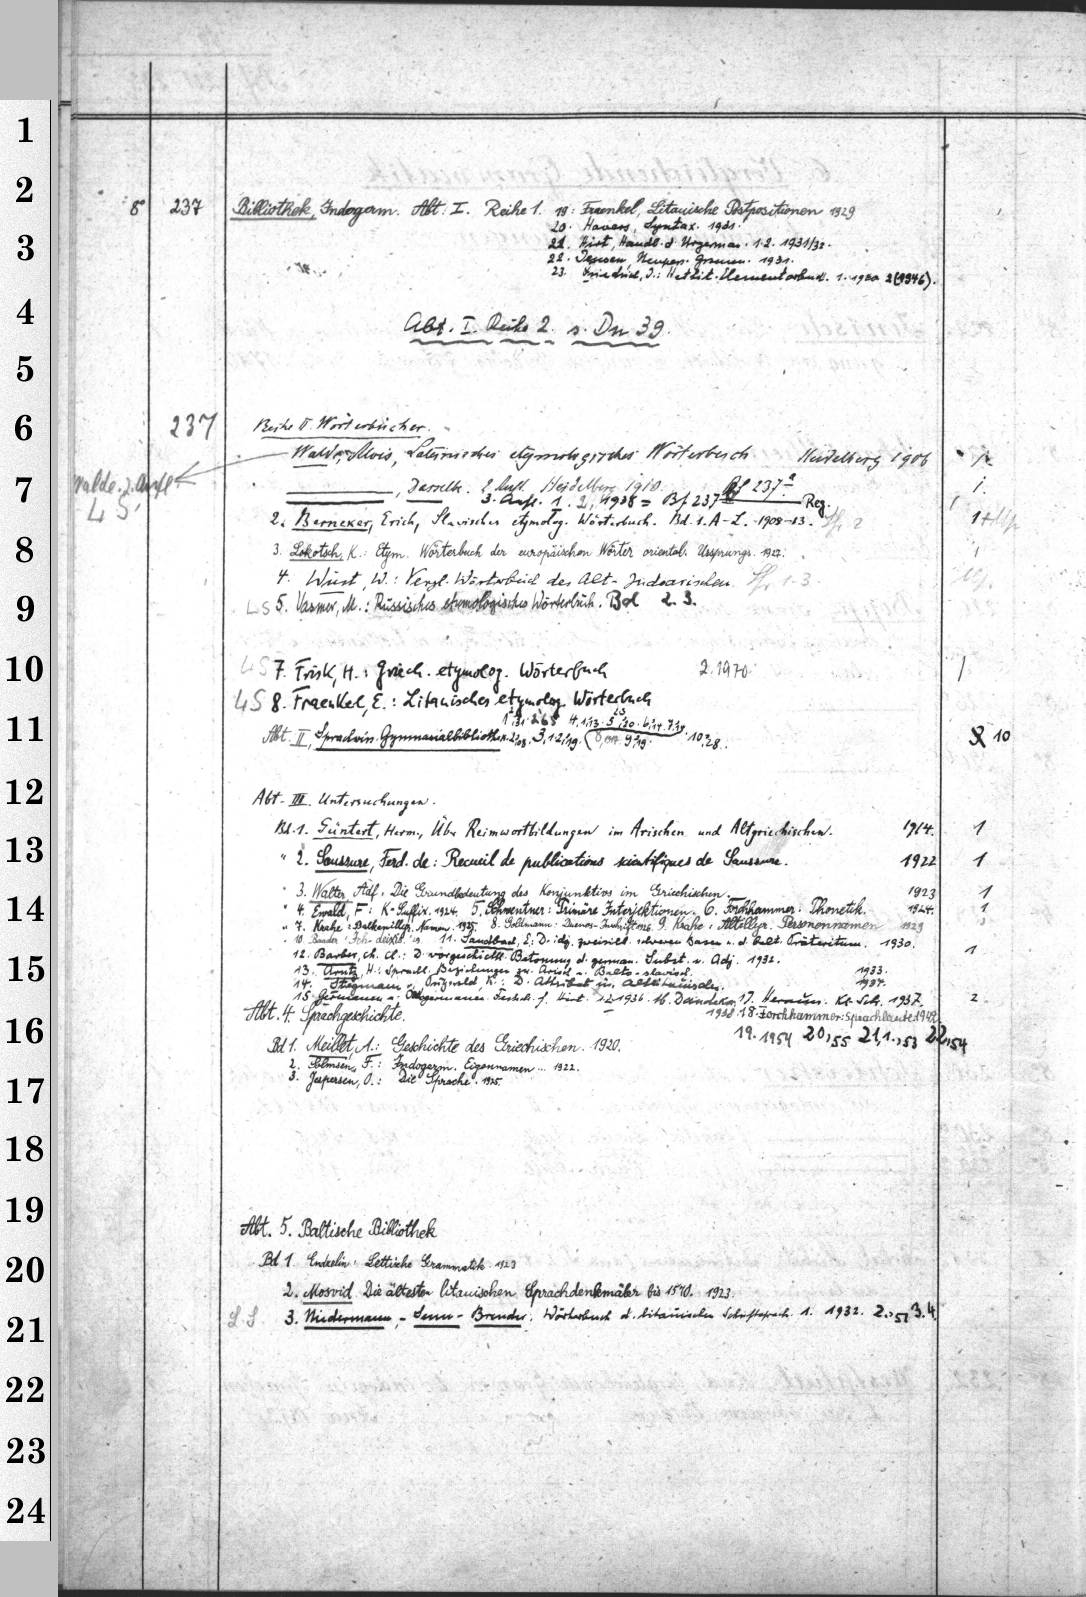 8° 237 Bibliothek, Indogerm. Abt. I. Reihe 1. 19: Fraenkel, Litauische Postpositionen 1929
20. Havers, Syntax. 1931.
21. Hirt, Handb. d. Urgerman. 1.2. 1931/32.
22. Jensen, Neupers. Gramm. 1931.
23. Friedrich, J.: Hethit. Elementarbuch. 1. 1940 2(1946).
Abt. I. Reihe 2. s. Dn 39.
237 Reihe II. Wörterbücher.
Walde, Alois, Lateinisches etymologisches Wörterbuch Heidelberg 1906 1.
Walde. 3. Aufl
LS,
, Dasselbe. 2. Aufl. Heidelberg 1910. Bf 237² 1.
3. Aufl. 1. 2, 1938 = Bf 237 Reg.
2. Berneker, Erich, Slavisches etymolog. Wörterbuch. Bd. 1. A-L. 1908-13. 1
3. Lokotsch, K.: Etym. Wörterbuch der europäischen Wörter oriental. Ursprungs. 1927. 1
4. Wüst W.: Vergl. Wörterbuch des Alt-Indoarischen. 1-3
LS 5. Vasmer, M.: Russisches etymologisches Wörterbuch. Bd 2. 3.
LS 7. Frisk, H.: Griech. etymolog. Wörterbuch 2.1970. 1
LS 8. Fraenkel, E.: Litauisches etymolog. Wörterbuch
Abt. II, Sprachwiss. Gymnasialbibliothek 10
Abt. III Untersuchungen.
Bd. 1. Güntert, Herm., Über Reimwortbildungen im Arischen und Altgriechischen. 1914. 1
" 2. Saussure, Ferd. de: Recueil de publications scientifiques de Saussure. 1922 1
" 3. Walter, Adf. Die Grundbedeutung des Konjunktivs im Griechischen. 1923 1
" 4. Ewald, F: K-Suffix. 1924. 5. Schwentner: Primäre Interjektionen. 6. Forchhammer: Phonetik. 1924. 1
" 7. Krahe: Balkanillyr. Namen. 1925. 8. Goldmann: Duenos-Inschrift. 1926 9. Krahe: Altillyr. Personennamen 1929
" 10. 11. Sandbach, E.: D. idg. zweisilb. schweren Basen u. d. balt. Präteritum. 1930. 1
12. Barber, Ch. Cl.: D. vorgeschichtl. Betonung d. german. Subst. u. Adj. 1932.
13. Arntz, H.: Sprachl. Beziehungen zw. Arisch u. Balto-slavisch. 1933.
14. Stegmann v. Pritzwald K.: D. Attribut im Altlitauischen. 1934.
15. Germanen u. Indogermanen. Festschr. f. Hirt. 1.2 1936. 16. Devidekar, 17. Herausn. Kl. Sch. 1937. 2
Abt. 4. Sprachgeschichte. 1938 18. Forchhammer: Sprachlaute 1942
19. 1954 20,55 21,1.,53 22,54
Bd 1. Meillet, A.: Geschichte des Griechischen. 1920.
2. Solmsen, F.: Indogerm. Eigennamen ... 1922.
3. Jespersen, O.: Die Sprache. 1925.
Abt. 5. Baltische Bibliothek
Bd 1. Endzelin: Lettische Grammatik. 1923
2. Mosvid Die ältesten litauischen Sprachdenkmäler bis 1570. 1923.
LS. 3. Niedermann, - Senn - Brender: Wörterbuch d. litauischen Schriftsprache. 1. 1932. 2.,51 3.4.
1
2
3
4
5
6
7
8
9
10
11
12
13
14
15
16
17
18
19
20
21
22
23
24